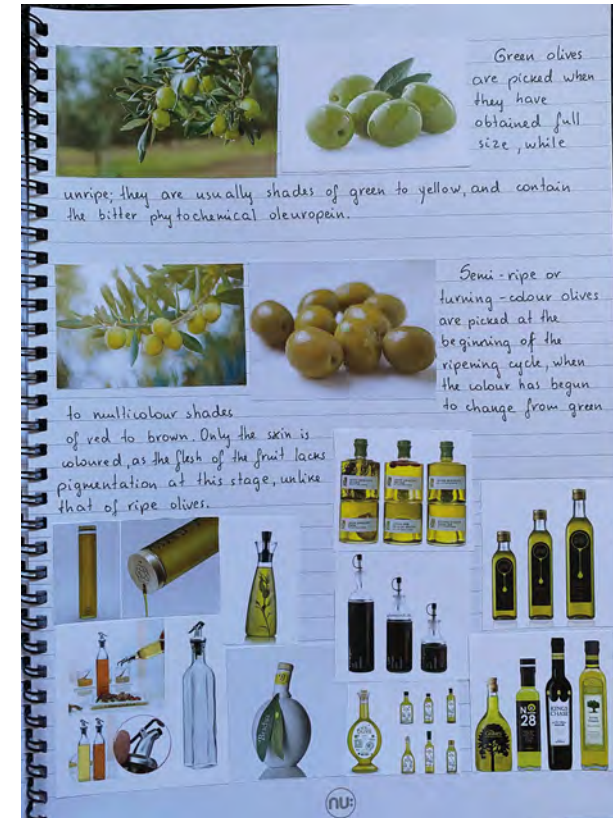 Green olives
are picked when
they have
obtained full
size, while
unripe; they are usually shades of green to yellow, and contain
the bitter phytochemical oleuropein.
Semi-ripe or
turning-colour olives
are picked at the
beginning of the
ripening cycle, when
the colour has begun
to change from green
to multicolour shades
of red to brown. Only the skin is
coloured, as the flesh of the fruit lacks
pigmentation at this stage, unlike
that of ripe olives.
No
28
KINGS
CHASE
nu: